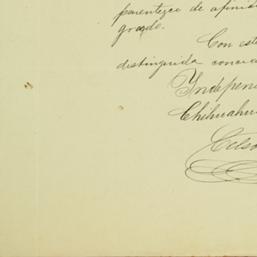 parentezco de afinid
grado.
Con est
distinguida consid
Independ
Chihuahu
Celso